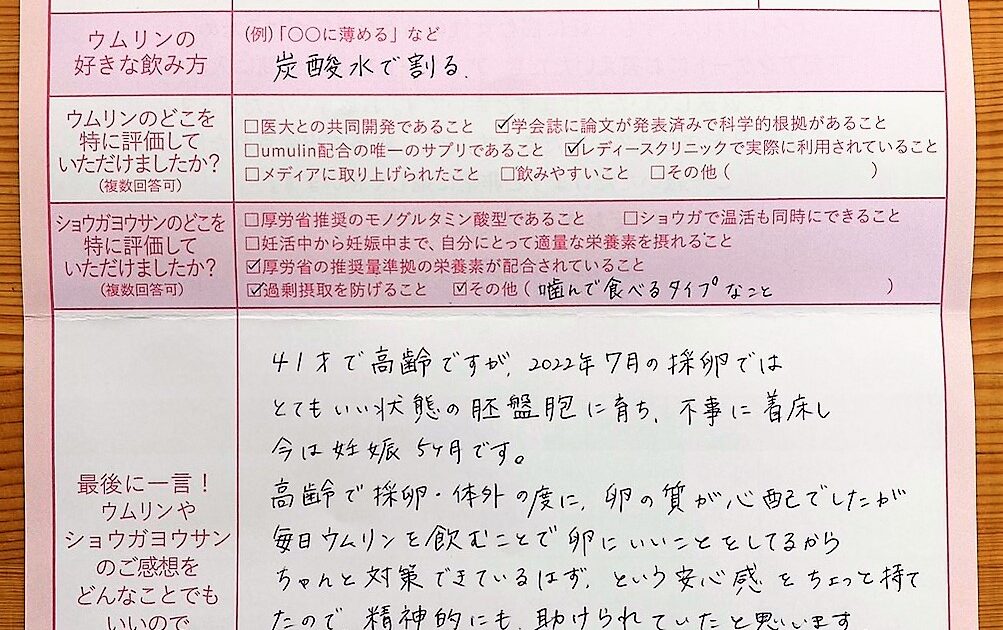 ウムリンの
好きな飲み方
(例)「〇〇に薄める」など
炭酸水で割る.
ウムリンのどこを
特に評価して
いただけましたか?
(複数回答可)
□医大との共同開発であること ☑学会誌に論文が発表済みで科学的根拠があること
□umulin配合の唯一のサプリであること ☑レディースクリニックで実際に利用されていること
□メディアに取り上げられたこと □飲みやすいこと □その他 ( )
ショウガヨウサンのどこを
特に評価して
いただけましたか?
(複数回答可)
□厚労省推奨のモノグルタミン酸型であること □ショウガで温活も同時にできること
□妊活中から妊娠中まで、自分にとって適量な栄養素を摂れること
☑厚労省の推奨量準拠の栄養素が配合されていること
☑過剰摂取を防げること ☑その他 ( 噛んで食べるタイプなこと )
最後に一言!
ウムリンや
ショウガヨウサン
のご感想を
どんなことでも
いいので
41才で高齢ですが、2022年7月の採卵では
とてもいい状態の胚盤胞に育ち、不事に着床し
今は妊娠5ヶ月です。
高齢で採卵・体外の度に、卵の質が心配でしたが
毎日ウムリンを飲むことで卵にいいことをしてるから
ちゃんと対策できているはず、という安心感をちょっと持て
たので精神的にも、助けられていたと思います